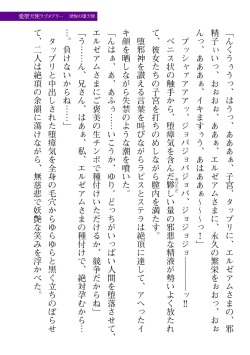 愛聖天使ラブメアリー
「んくぅぅうっ、はうっ、あああぁ、子宮、タップリに、エルゼアムさまの、邪
精子ぃいっ、おぉぉお、あぁぁ、エルゼアムさまに、永久の繁栄をおおっ、おぉ
んっ、あああぁ、イキますぅう、あはあぁぁ～～っ！」
プッシャァアアアッ、ジョバジョバジョバ、ジョジョジョ――ッ!!
ペニスの触手から、堕瘴気を含んだ夥しい量の邪悪な精液が勢いよく放たれ
て、彼女たちの子宮をドクドクと穢しながら膣内を満たす。
堕邪神を讃える言葉を叫びながらラビエスとステラは絶頂に達して、アヘったイ
キ顔を晒しながら失禁のような潮を噴いた。
「んはぁ、あ、あふっ……こうか、ゆり、どっちがいっぱい人間を堕落させて、
エルゼアムさまにご褒美の生チンポで種付けいただけるか、競争だからね」
「う……ん、兄さん、はぁぁ、私、エルゼアムさまの種付けで、絶対孕むから…
…、負けないからね……」
タップリと中出しされた堕瘴気を全身の毛穴からゆらゆらと黒く立ちのぼらせ
て、二人は絶頂の余韻に蕩けながら、無慈悲で妖艶な笑みを浮かべた。